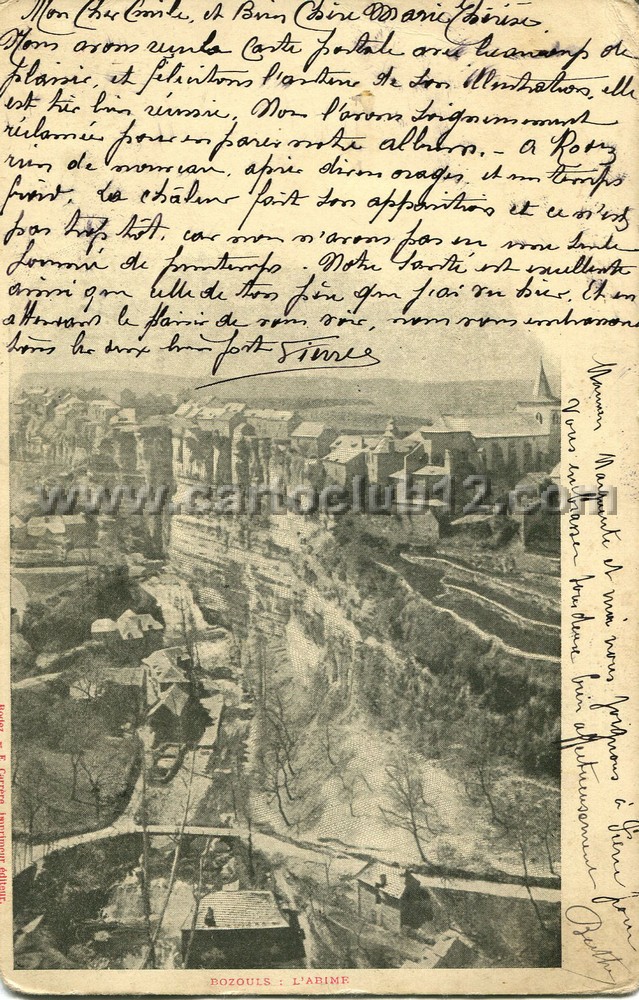 Mon Cher Emile, et Bien Chère Marie Thérèse
Nous avons reçu la Carte postale avec beaucoup de
plaisir, et félicitons l'auteur de son illustration, elle
est très bien réussie. Nous l'avons soigneusement
réclamée pour en parer notre album. - A Rodez
rien de nouveau, après divers orages, et un temps
froid, La châleur fait son apparition et ce n'est
pas trop tôt, car nous n'avons pas eu une seule
journée de printemps. Notre santé est excellente
ainsi que celle de ton père que j'ai vu hier. Et en
attendant le plaisir de vous voir, nous vous embrassons
tous les deux bien fort Pierre
Maman Marguerite et moi nous joignons à Pierre pour
Vous embrasser tous deux bien affectueusement
Berthe
www.cartoclub12.com
Rodez. — E. Carrère, Imprimeur éditeur.
BOZOULS : L'ABIME